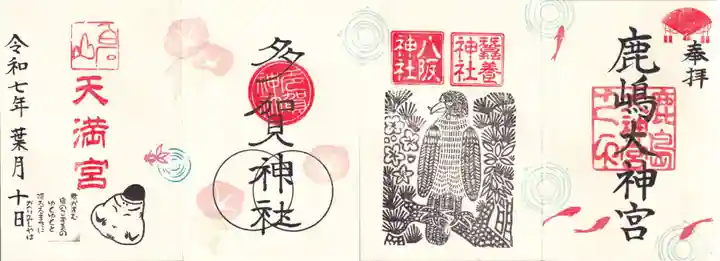 奉拝
鹿嶋大神宮
蠶養
神社
八阪
神社
多賀神社
天満宮
令和七年 葉月 十日